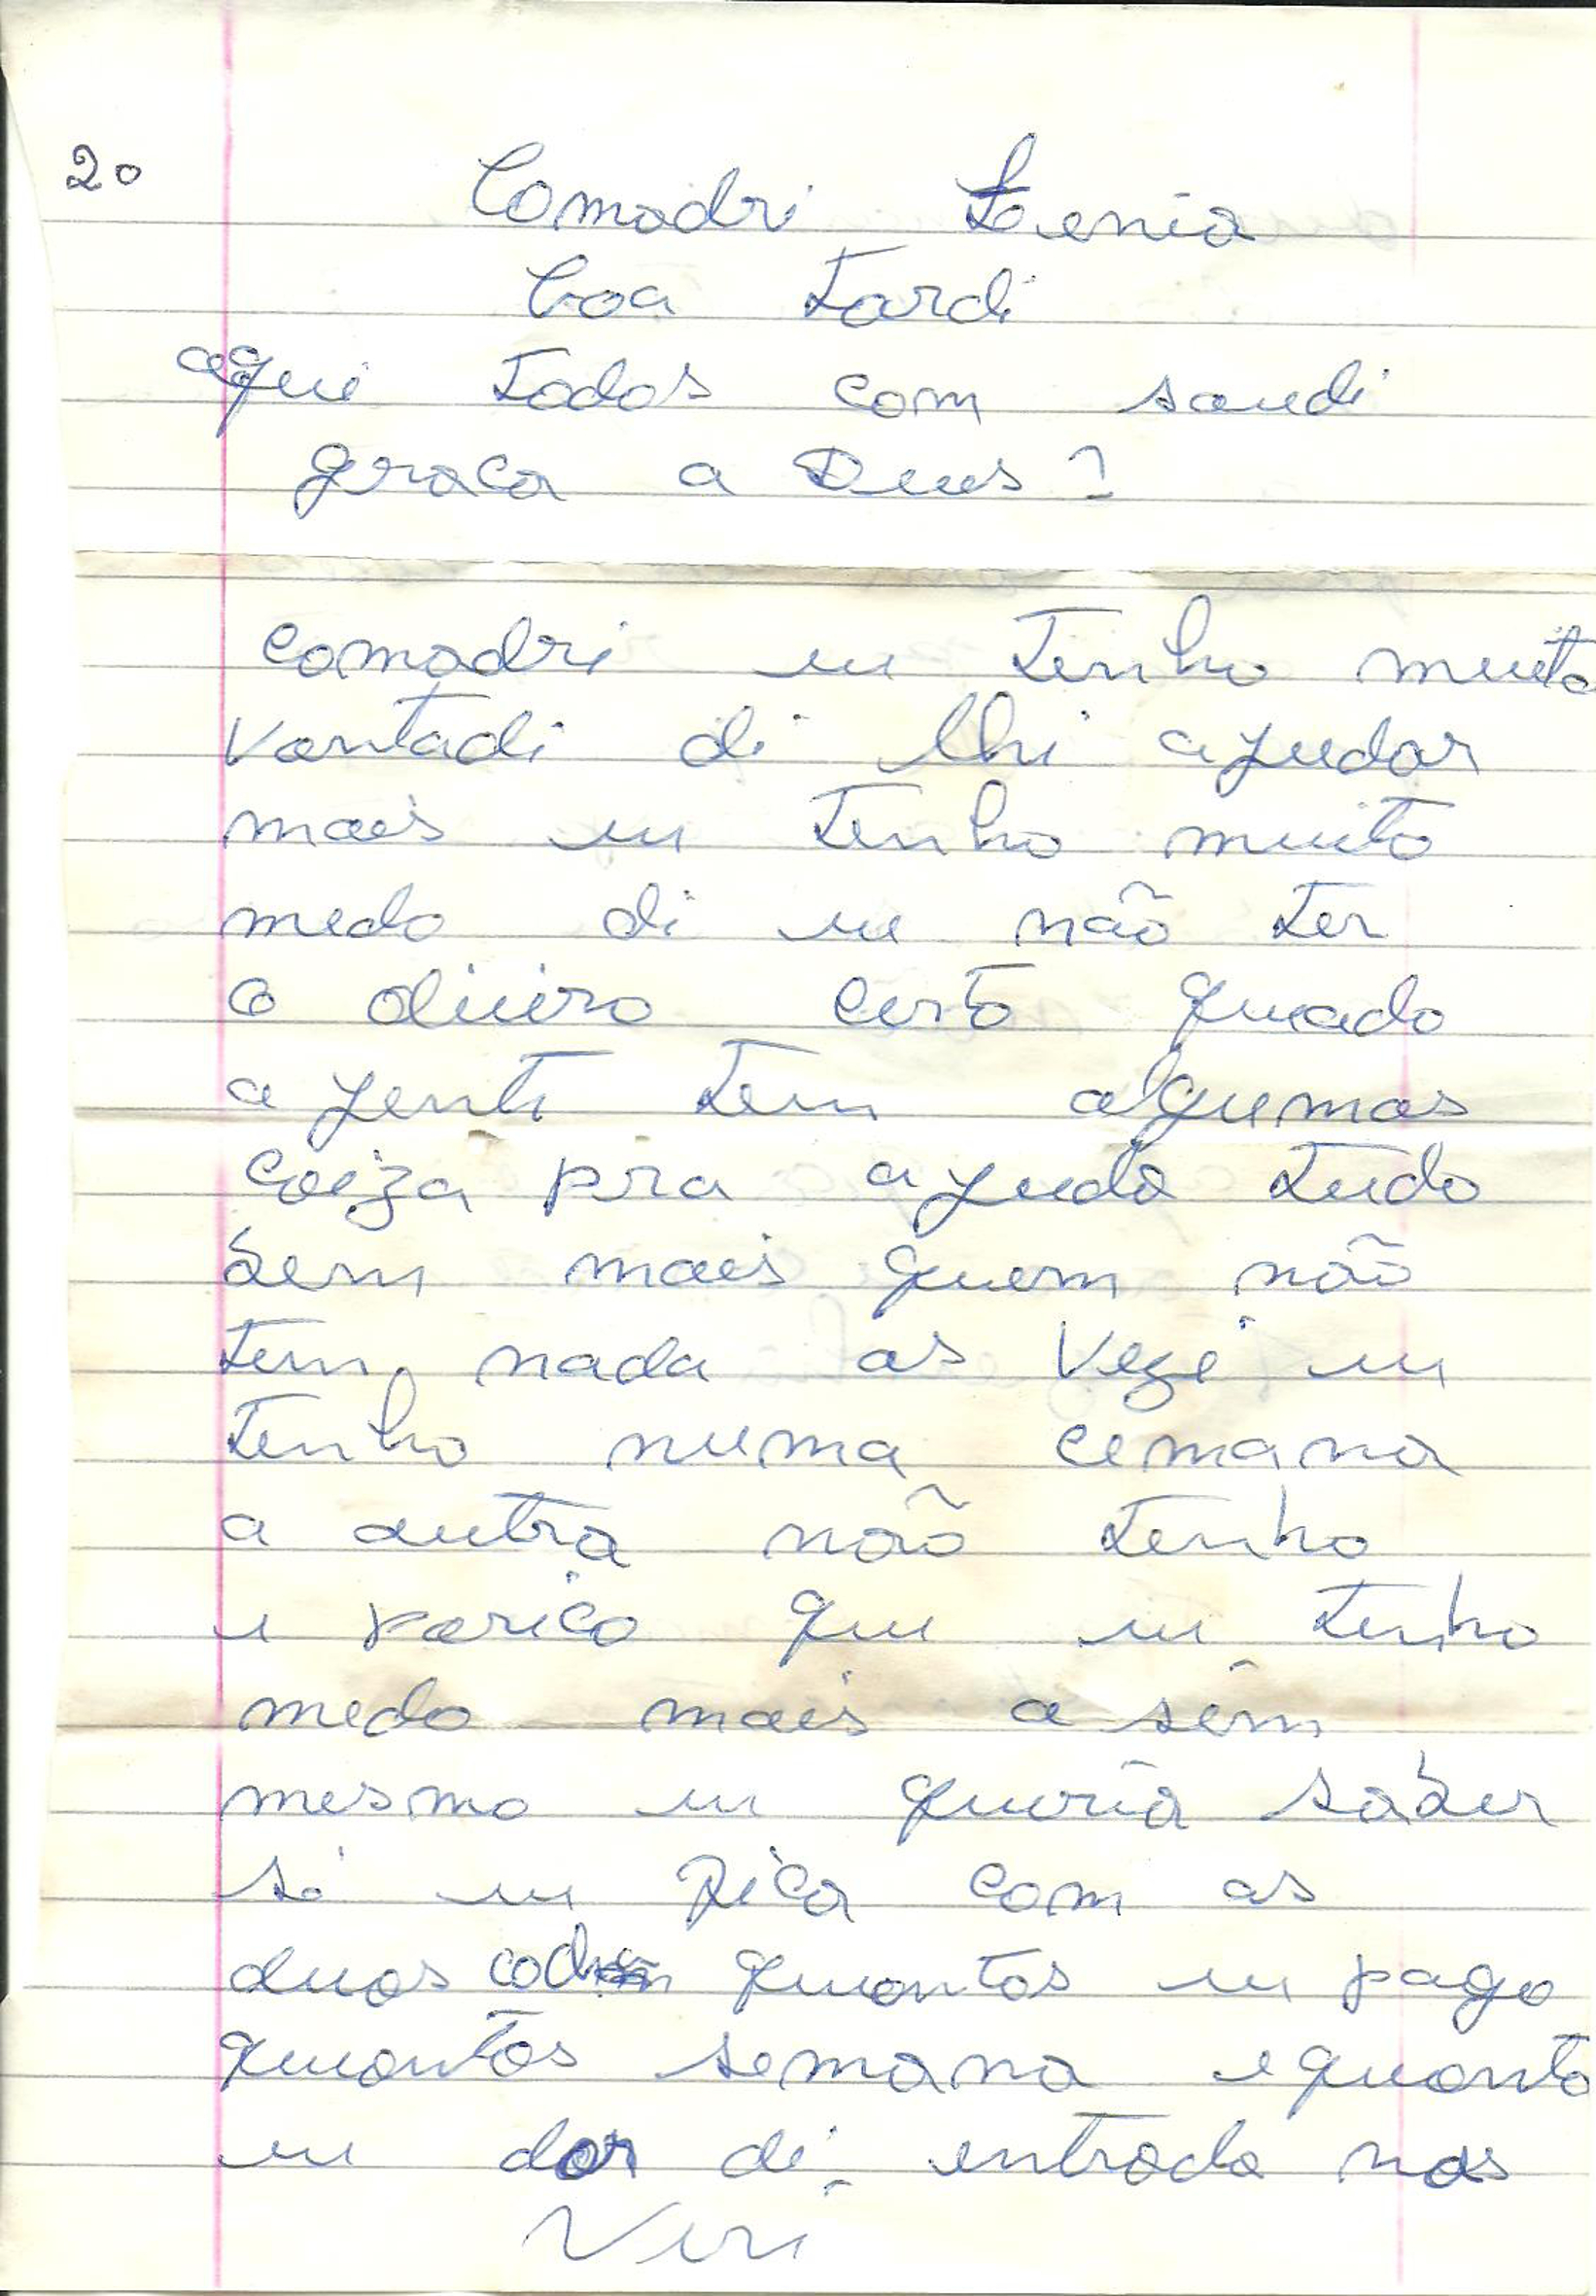 20
Comadri Zenia
boa Tardi
aqui Todos com saudi
graca a Deus?
comadri eu Tenho muita
vontadi di lhi ajudar
mais eu Tenho muito
medo di eu não Ter
o diiero certo quado
a jenti Tem algumas
coiza pra ajuda Tudo
bem mais quem não
Tem nada as vezi eu
Tenho numa cemana
a outra não Tenho
e pariço que eu Tenho
medo mais a sim
mesmo eu queria saber
si eu fica com as
duas quantos eu pago
quantos semana e quanto
eu dar di entrada nas
Viri